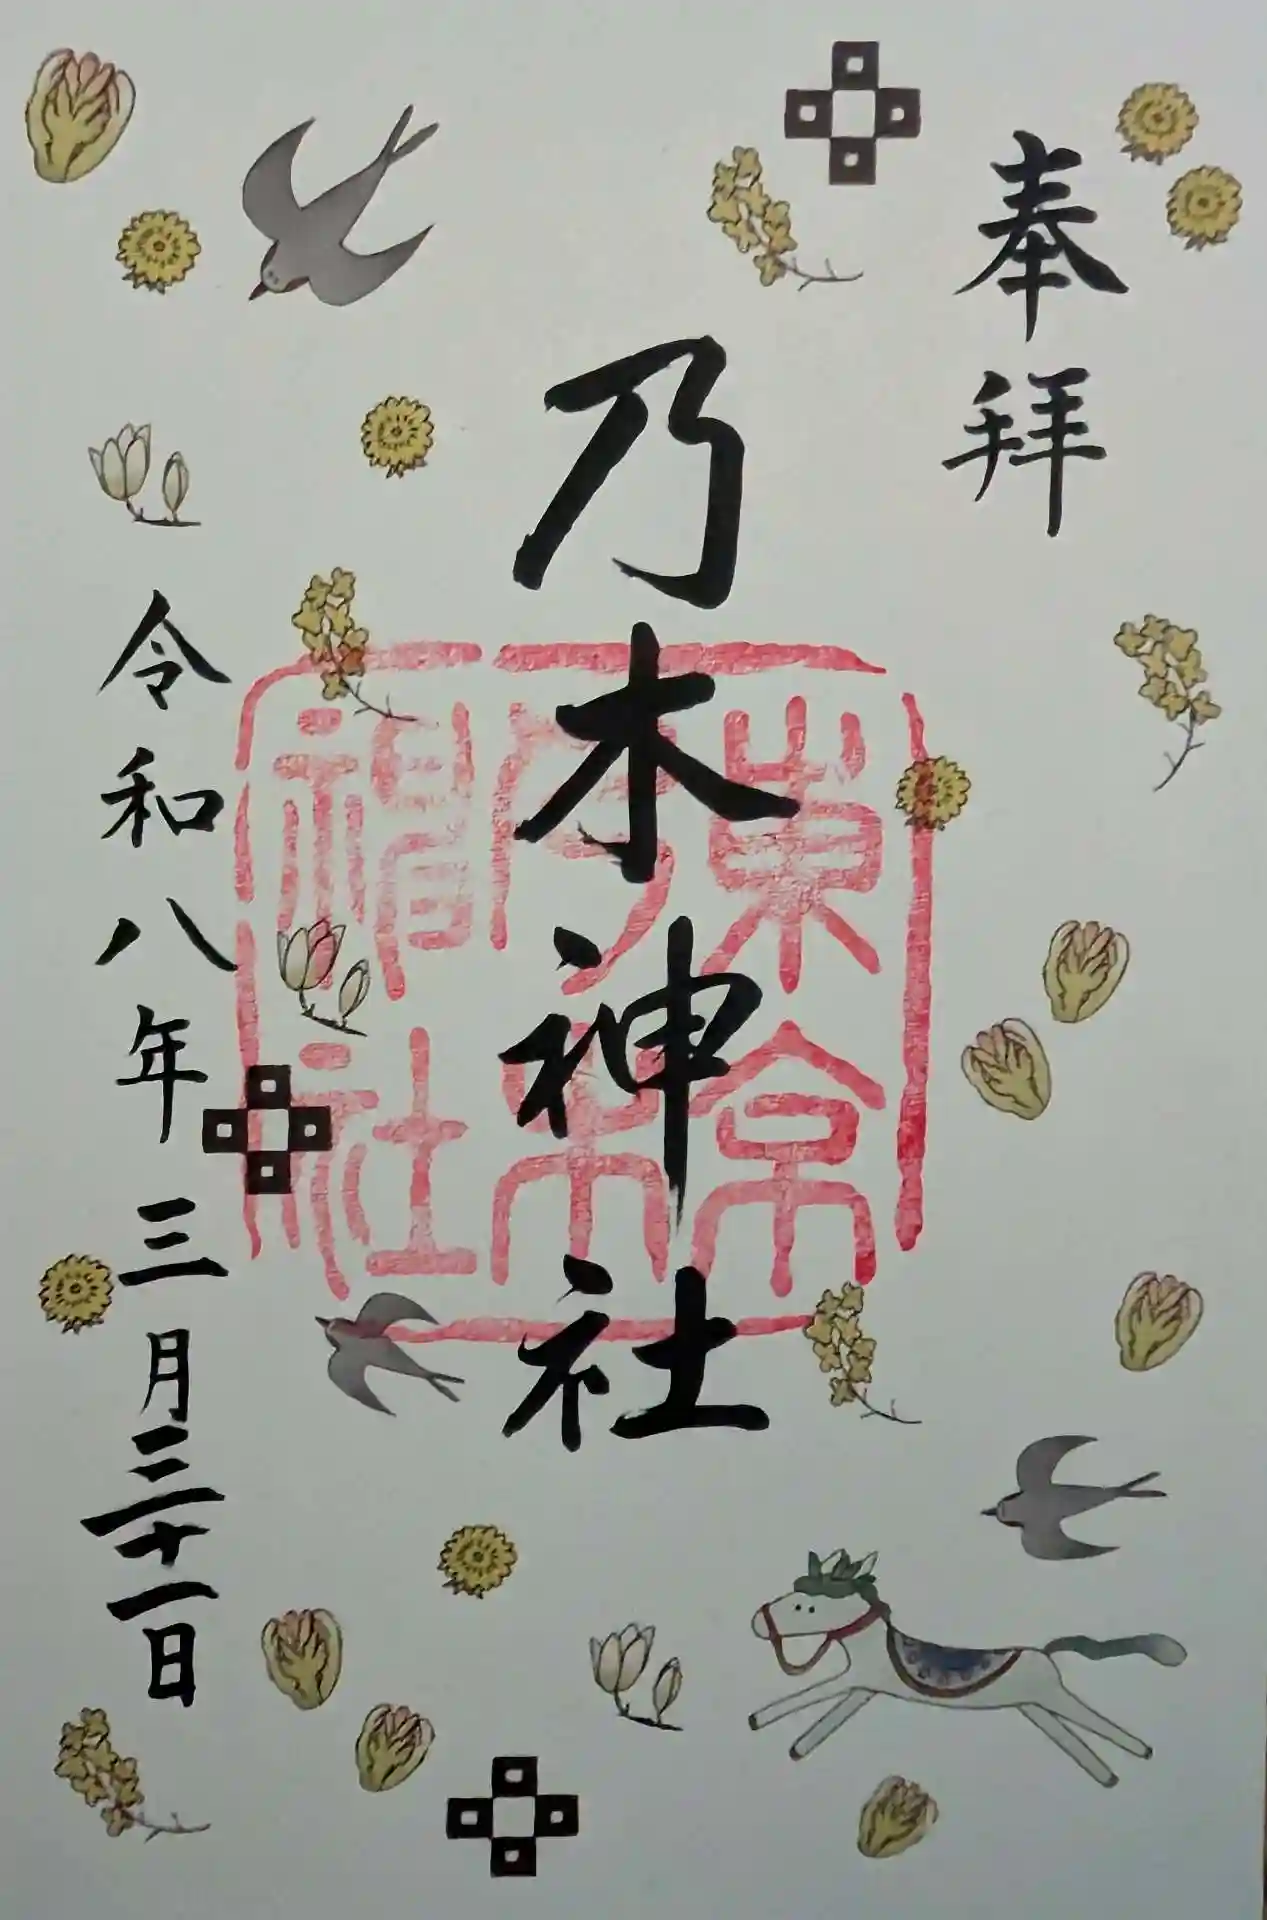 奉拝
乃木神社
東京乃木神社
令和八年三月三十一日